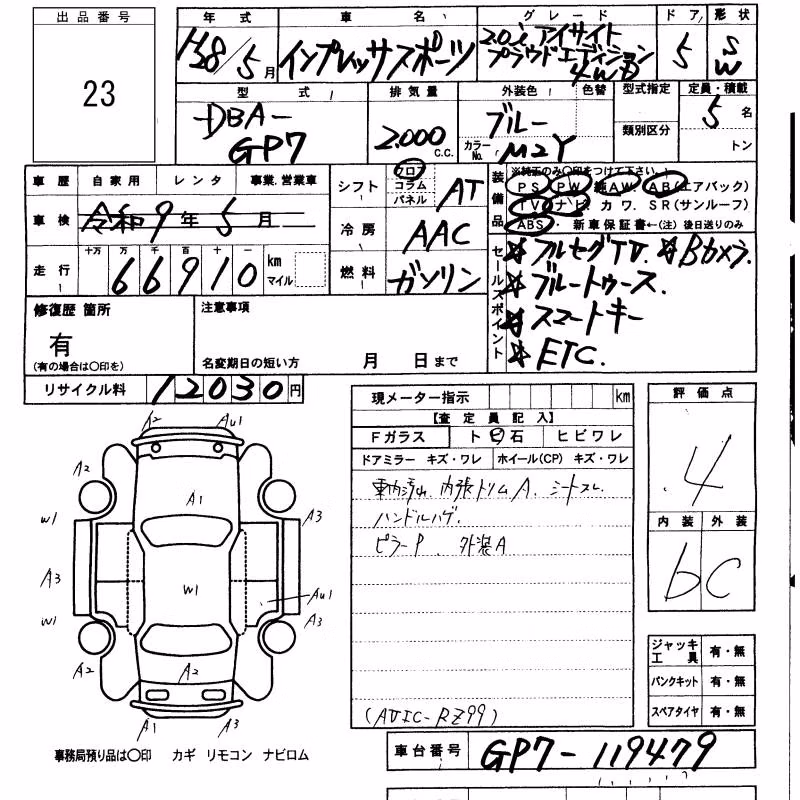 出品番号
23
年式
H28/5月
車名
インプレッサスポーツ
グレード
2.0i アイサイト
プラウドエディション
4WD
ドア
5
形状
SW
型式
DBA-
GP7
排気量
2.000
C.C.
外装色
色替
ブルー
カラーNo.
M2Y
型式指定
類別区分
定員・積載
5名
トン
車歴 自家用 レンタ 事業.営業車
車検 令和9年5月
走行
十万 万 千 百 十 一
66910
km
マイル
シフト
フロア
コラム
パネル
AT
冷房
AAC
燃料
ガソリン
装備品
※純正のみ〇印をつけて下さい。
PS PW 純AW AB(エアバック)
TV ナビ カワ.SR(サンルーフ)
ABS・新車保証書←(注)後日送りのみ
セールスポイント
フルセグTV. Bカメラ.
ブルートゥース.
スマートキー
ETC.
修復歴 箇所
有
(有の場合は〇印を)
注意事項
名変期日の短い方 月 日まで
リサイクル料 12030円
現メーター指示 km
【査定員記入】
Fガラス ト ビ 石 ヒビワレ
ドアミラー キズ・ワレ ホイール(CP) キズ・ワレ
車内汚れ. 内張トリムA. シートスレ
ハンドルハゲ.
ピラーP. 外装A
(AVIC-RZ99)
評価点
4
内装 外装
b C
ジャッキ工具 有・無
パンクキット 有・無
スペアタイヤ 有・無
A2 AU1
A2
A1
W1 A3
A3
W1
AU1
W1 A3
A2
A2
A1 A3
事務局預り品は〇印 カギ リモコン ナビロム
車台番号 GP7-119479